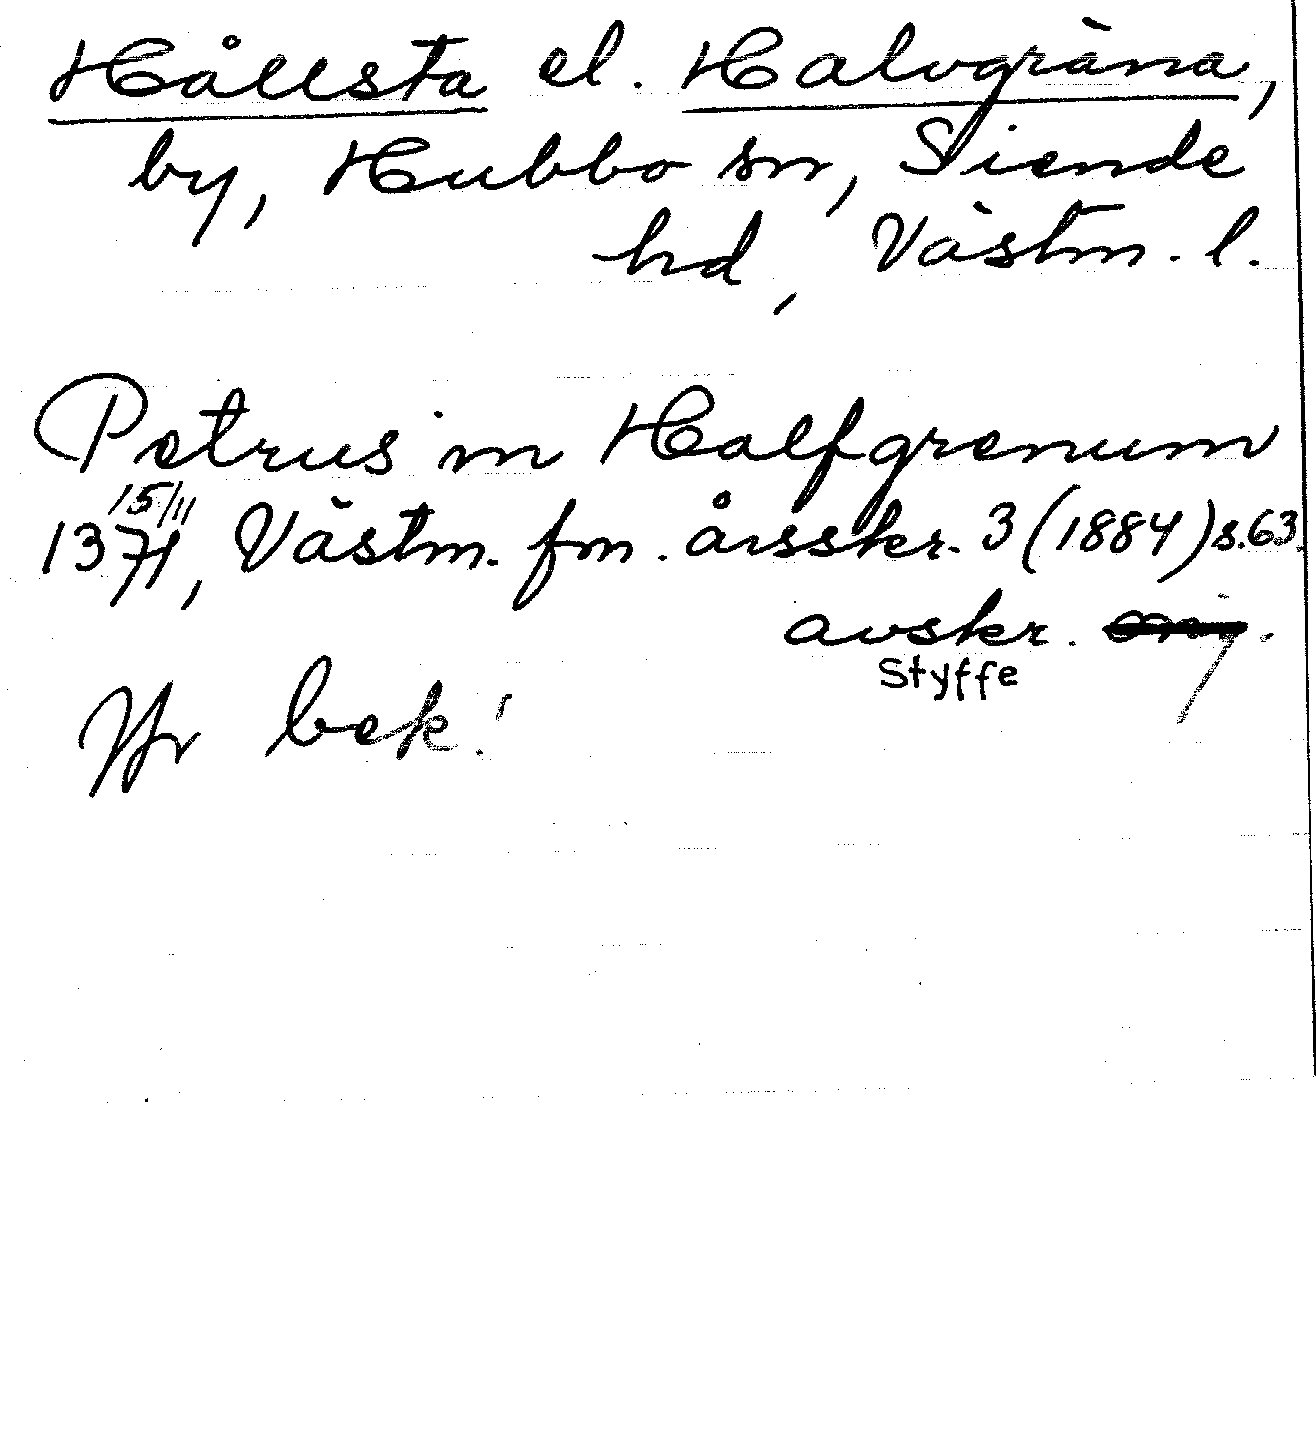 Hållsta el. Halvgräna,
by, Hubbo sn, Siende
hd, Västm. l.
Petrus in Halfgrenum
15/11
1371, Västm. fm. årsskr. 3 (1884) s. 63.
avskr.
Styffe
bek!